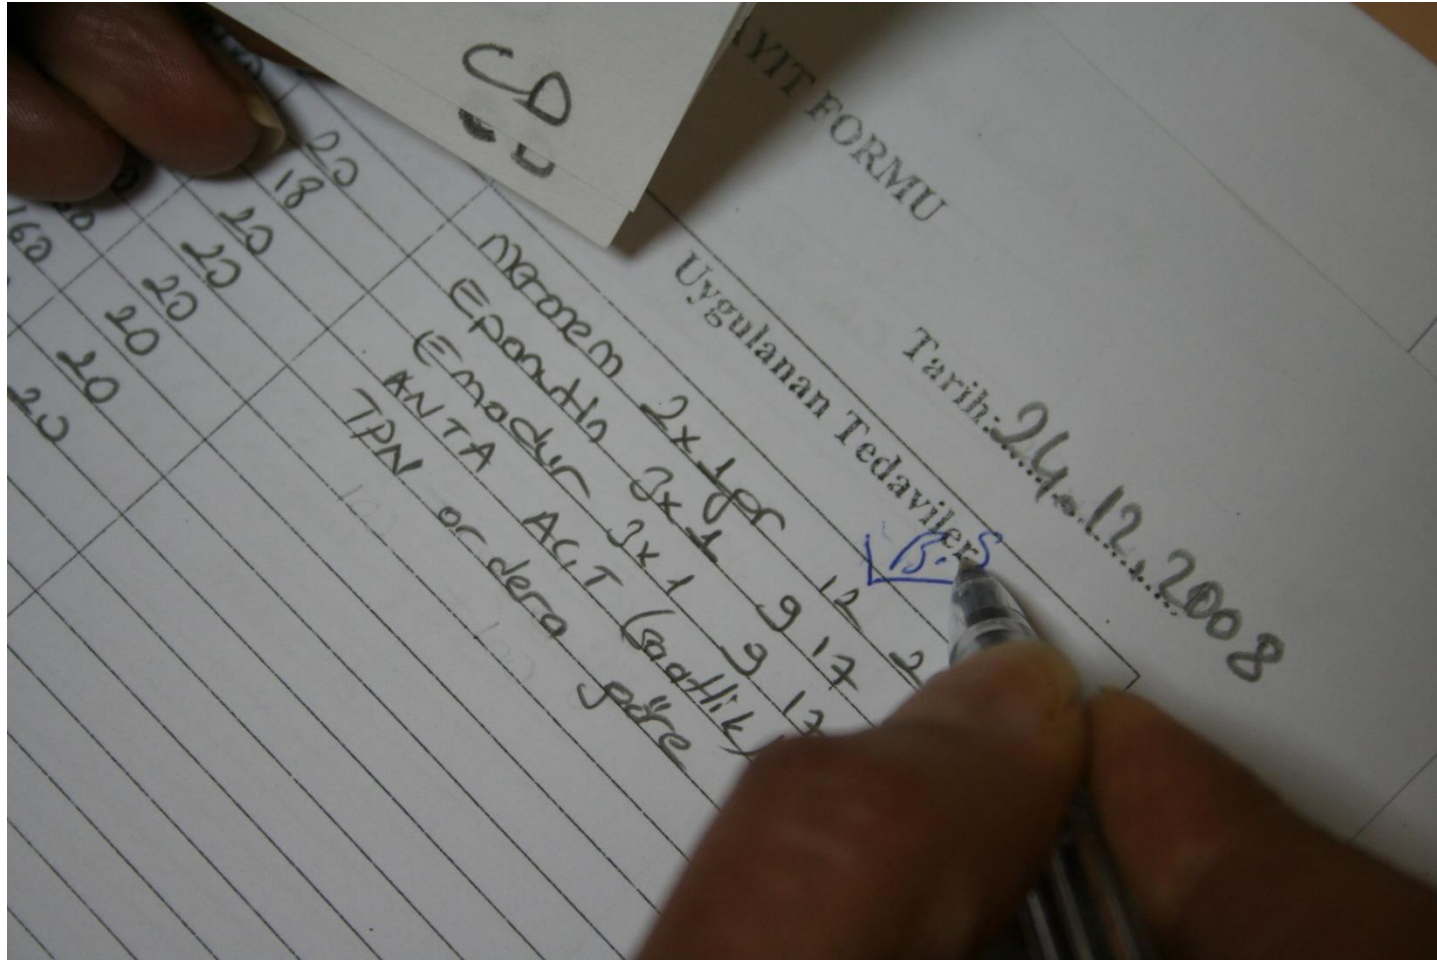 CD
AYIT FORMU
Tarih: 24.12.2008
Uygulanan Tedaviler
Meronem 2x1gr 12
Epanutin 3x1 9 17 2
Emodur 3x1 9 17
ANTA AGT (saatlik)
TPN ordera göre
20
18
20
20
20
20
20
20
160